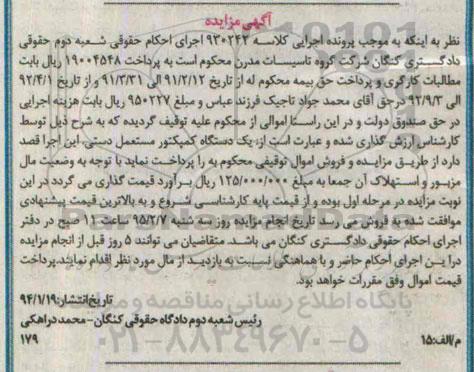 آگهی مزایده
نظر به اینکه به موجب پرونده اجرایی کلاسه ۹۳۰۲۴۲ اجرای احکام حقوقی شعبه دوم حقوقی
دادگستری کنگان شرکت گروه تاسیسات مدرن محکوم است به پرداخت ۱۹۰۰۴۵۴۸ ریال بابت
مطالبات کارگری و پرداخت حق بیمه محکوم له از تاریخ ۹۱/۲/۱۲ الی ۹۱/۳/۳۱ و از تاریخ ۹۲/۴/۱
الی ۹۲/۹/۳ درحق آقای محمد جواد تاجیک فرزند عباس و مبلغ ۹۵۰۲۲۷ ریال بابت هزینه اجرایی
در حق صندوق دولت و در این راستا اموالی از محکوم علیه توقیف گردیده که به شرح ذیل توسط
کارشناس ارزش گذاری شده و عبارت است از، یک دستگاه کمپکتور مستعمل دستی. این اجرا قصد
دارد از طریق مزایده و فروش اموال توقیفی محکوم به را پرداخت نماید با توجه به وضعیت مال
مزبور و استهلاک آن جمعا به مبلغ ۱۲۵/۰۰۰/۰۰۰ ریال برآورد قیمت گذاری می گردد در این
نوبت مزایده در مرحله اول بوده و از قیمت پایه کارشناسی شروع و به بالاترین قیمت پیشنهادی
موافقت شده به فروش می رسد تاریخ انجام مزایده روز سه شنبه ۹۵/۲/۷ ساعت ۱۱ صبح در دفتر
اجرای احکام حقوقی دادگستری کنگان می باشد. متقاضیان می توانند ۵ روز قبل از انجام مزایده
درایـن اجرای احکام حاضر و با هماهنگی نسبت به بازدیـد از مال مورد نظر اقدام نمایند.پرداخت
قیمت اموال وفق مقررات خواهد بود.
تاریخ انتشار:۹۴/۱/۱۹
رئیس شعبه دوم دادگاه حقوقی کنگان-محمد دراهکی
م/الف:۱۵
۱۷۹
پایگاه اطلاع رسانی مناقصه و مزایده
۰۲۱-۸۸۳۴۹۶۷۰-۵